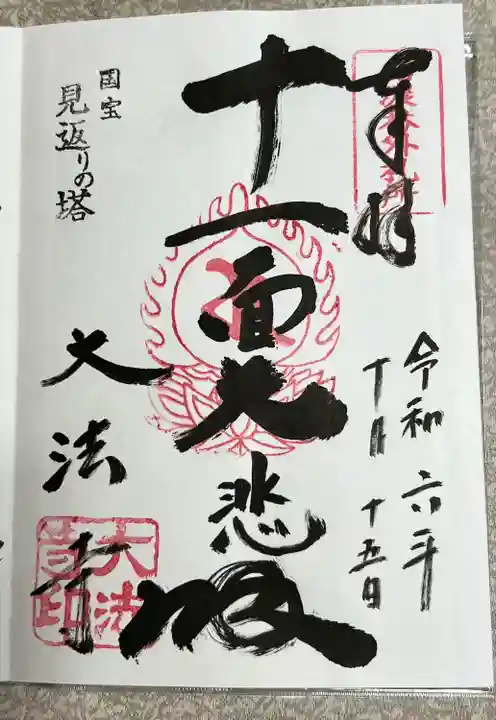 奉拝
令和六年
十月十五日
十一面大悲殿
国宝
見返りの塔
大法寺
大法寺印